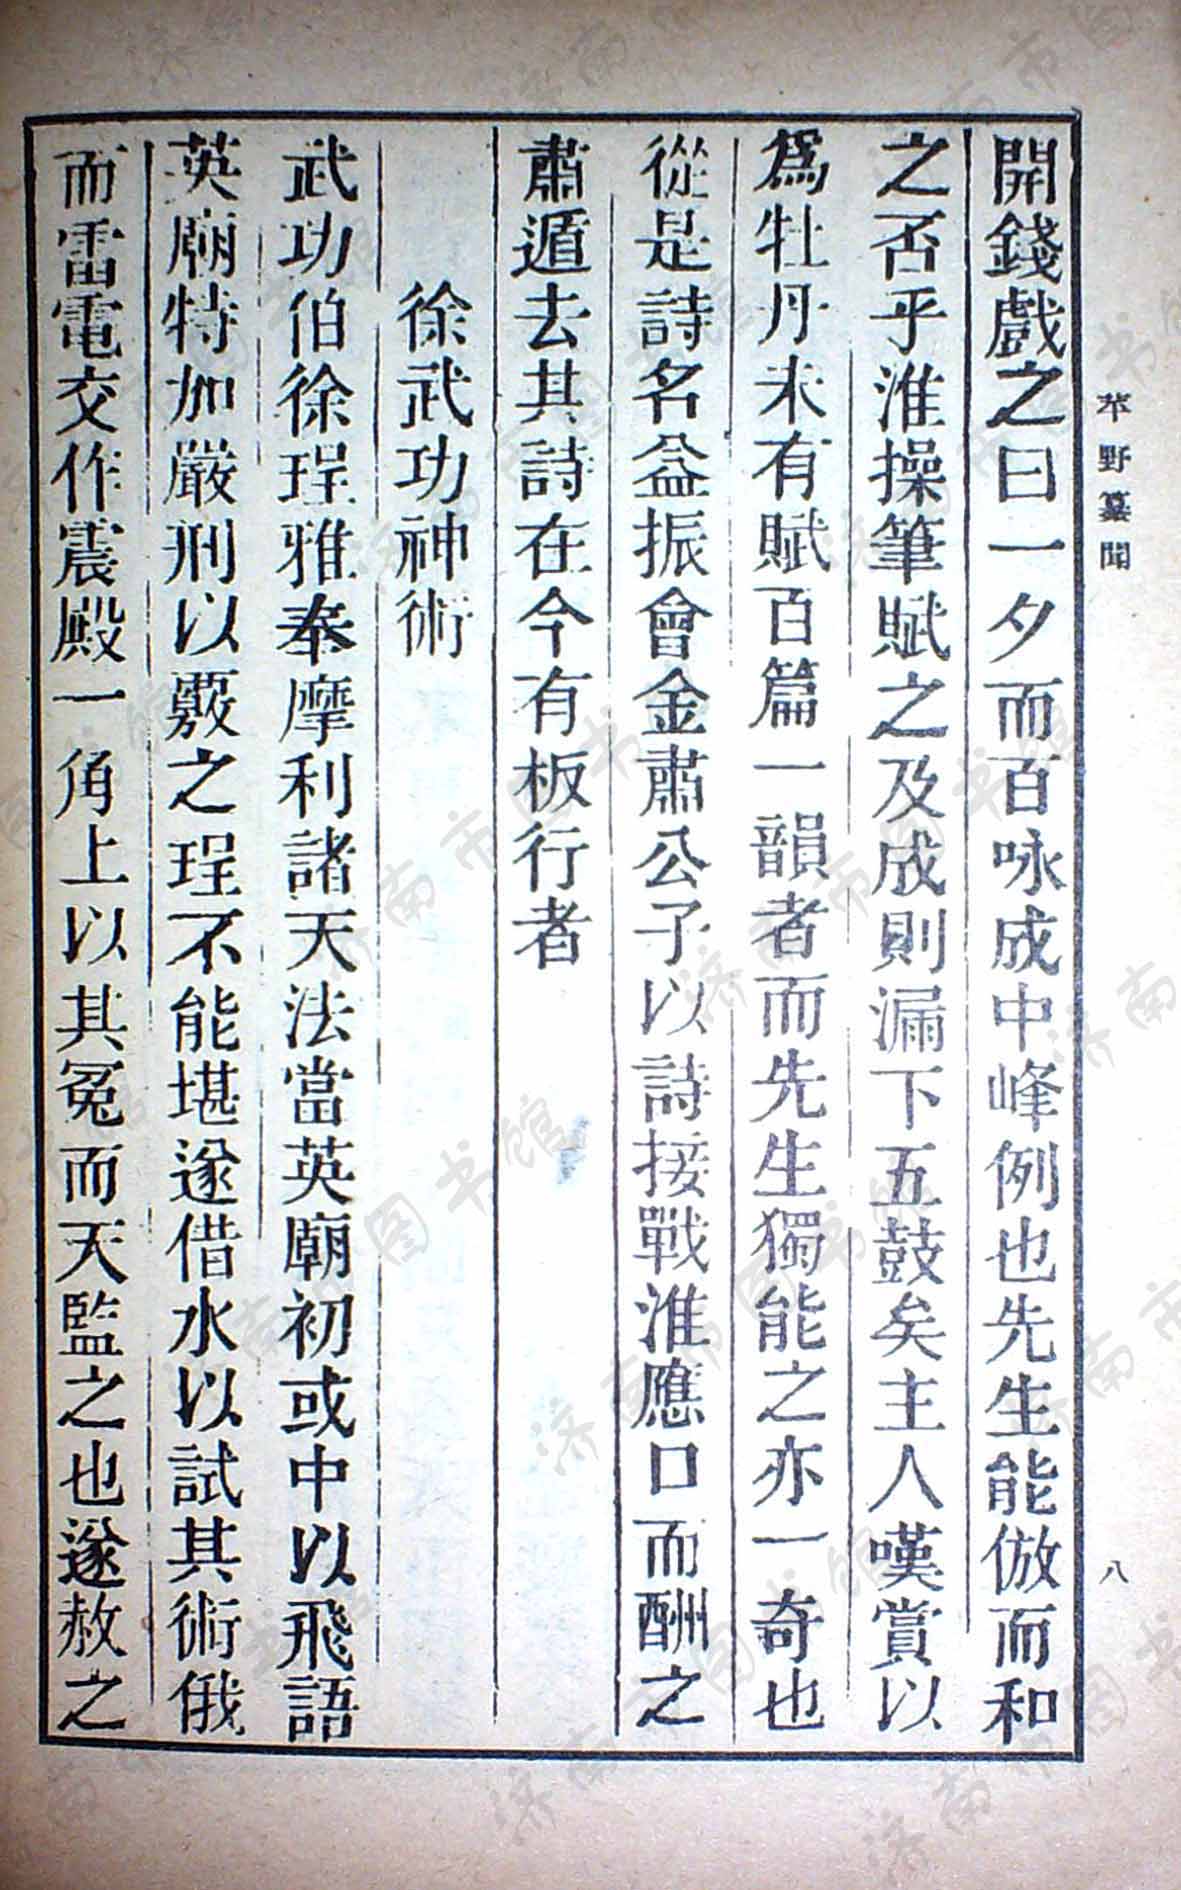 開錢戲之曰一夕而百咏成中峰例也先生能倣而和
之否乎淮操筆賦之及成則漏下五鼓矣主人嘆賞以
爲牡丹未有賦百篇一韻者而先生獨能之亦一奇也
從是詩名益振會金肅公子以詩接戰淮應口而酬之
肅遁去其詩在今有板行者
徐武功神術
武功伯徐珵雅奉摩利諸天法當英廟初或中以飛語
英廟特加嚴刑以覈之珵不能堪遂借水以試其術俄
而雷電交作震殿一角上以其冤而天監之也遂赦之
苹野纂聞
八
济南市图书馆